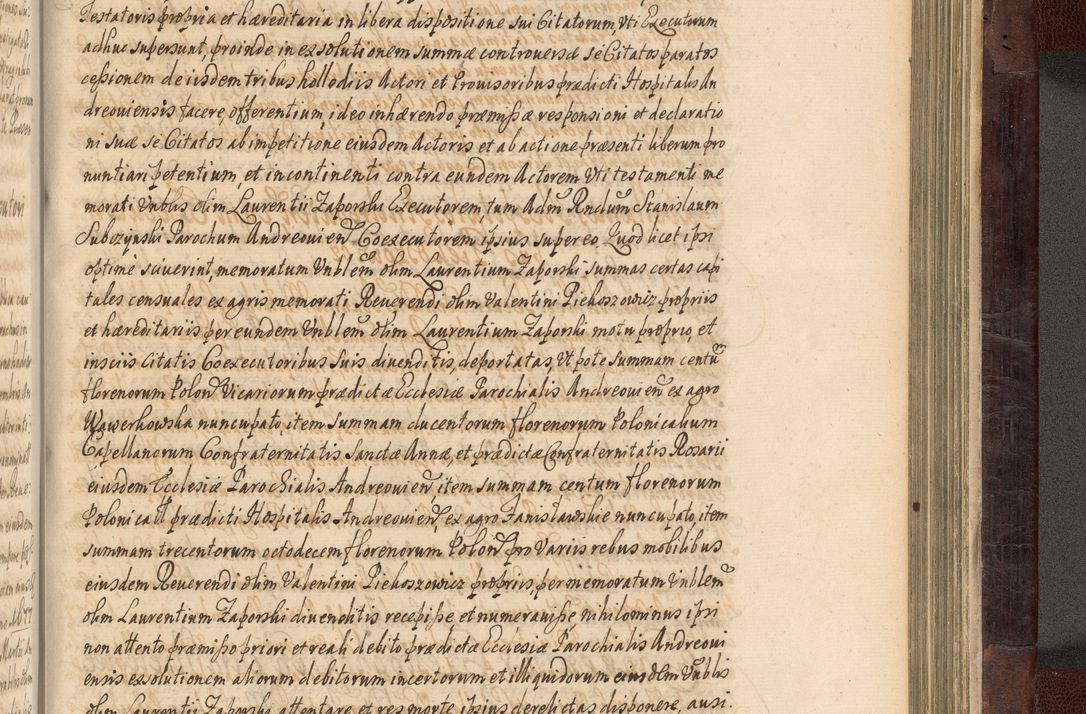 Testatoris propria et hæreditaria in libera dispositione sui Citatorum, Vti Executorum
adhuc supersunt, proinde in exsolutionem summæ controuersæ se Citatos paratos
cessionem de iisdem tribus hallodiis Actori et Prouisoribus prædicti Hospitalis An
dreouiensis facere, offerentium, ideo inhærendo præmissæ responsioni et declaratio
ni suæ se Citatos ab impetitione eiusdem Actoris et ab actione præsenti liberum pro
nuntiari petentium et incontinenti contra eundem Actorem Vti testamenti me
morati Vnblis olim Laurentii Zaporski Executorem, tum Adm Rndum Stanislaum
Subczynski Parochum Andreouien Coexecutorem ipsius super eo, Quod licet ipsi
optime sciuerint, memoratum Vnblem olim Laurentium Zaporski summas certas capi
tales censuales ex agris memorati Reuerendi olim Valentini Piekoszowicz propriis
et hæreditariis per eundem Vnblem olim Laurentium Zaporski motu proprio, et
insciis Citatis Coexecutoribus suis diuenditis, deportatas, Vt pote summam centu
florenorum Polon Vicariorum prædictæ Ecclesiæ Parochialis Andreouien ex agro
Wawerkowska nuncupato, item summam ducentorum florenorum Polonicalium
Capellanorum Confraternitatis Sanctæ Annæ, et prædictæ Confraternitatis Rosarii
eiusdem Ecclesiæ Parochialis Andreouien item summam centum florenorum
Polonicall prædicti Hospitalis Andreouien ex agro Janisławskie nuncupato, item
summam trecentorum octodecem florenorum Polon pro Variis rebus mobilibus
eiusdem Reuerendi olim Valentini Piekoszowicz propriis, per memoratum Vnblem
olim Laurentium Zaporski diuenditis recepisse, et numerauisse nihilominus ipsi
non attento præmisso priori et reali debito prædictæ Ecclesiæ Parochialis Andreoui
ensis exsolutionem aliorum debitorum incertorum et illiquidorum eiusdem Vnblis
olim Laurentii Zaporski attentare et res morte ipsius derelictas disponere, ausi.